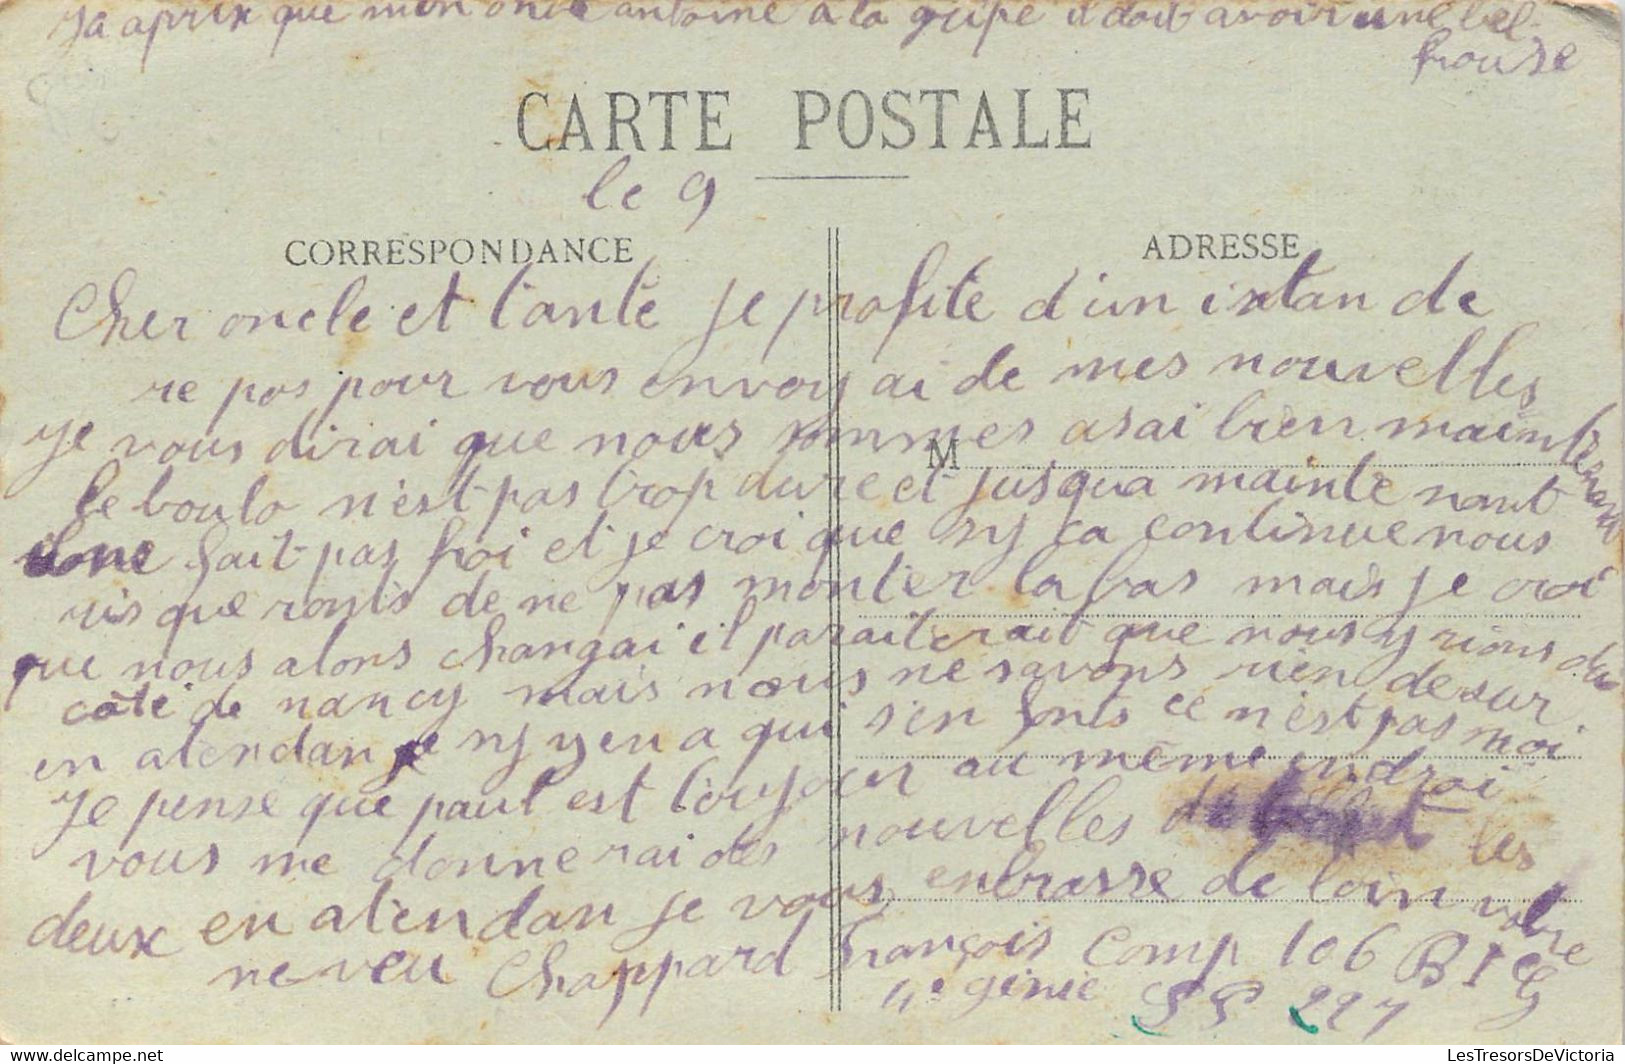 Ja aprix que mon oncle antoine a la gripe il doit avoir une bel
frouse
CARTE POSTALE
le 9
CORRESPONDANCE
ADRESSE
Cher oncle et tante je profite d'un ixtan de
repos pour vous envoyai de mes nouvelles
Je vous dirai que nous sommes asai bien maintenant
M
le boulo n'est pas trop dure et jusqua maintenant
fait pas froi et je croi que sy ca continue nous
risqueronts de ne pas monter la bas mais je croi
que nous alons changai il paraiterait que nous yrions du
côté de nancy mais nous ne savons rien de sur
en atendan sy y en a qui s'en fonts ce n'est pas moi
Je pense que paul est toujour au même endroi
vous me donnerai des nouvelles de les
deux en atendan je vous enbrasse de loin votre
neveu Chappard François Comp 106 B 1 er
4e génie SP 227
LesTresorsDeVictoria